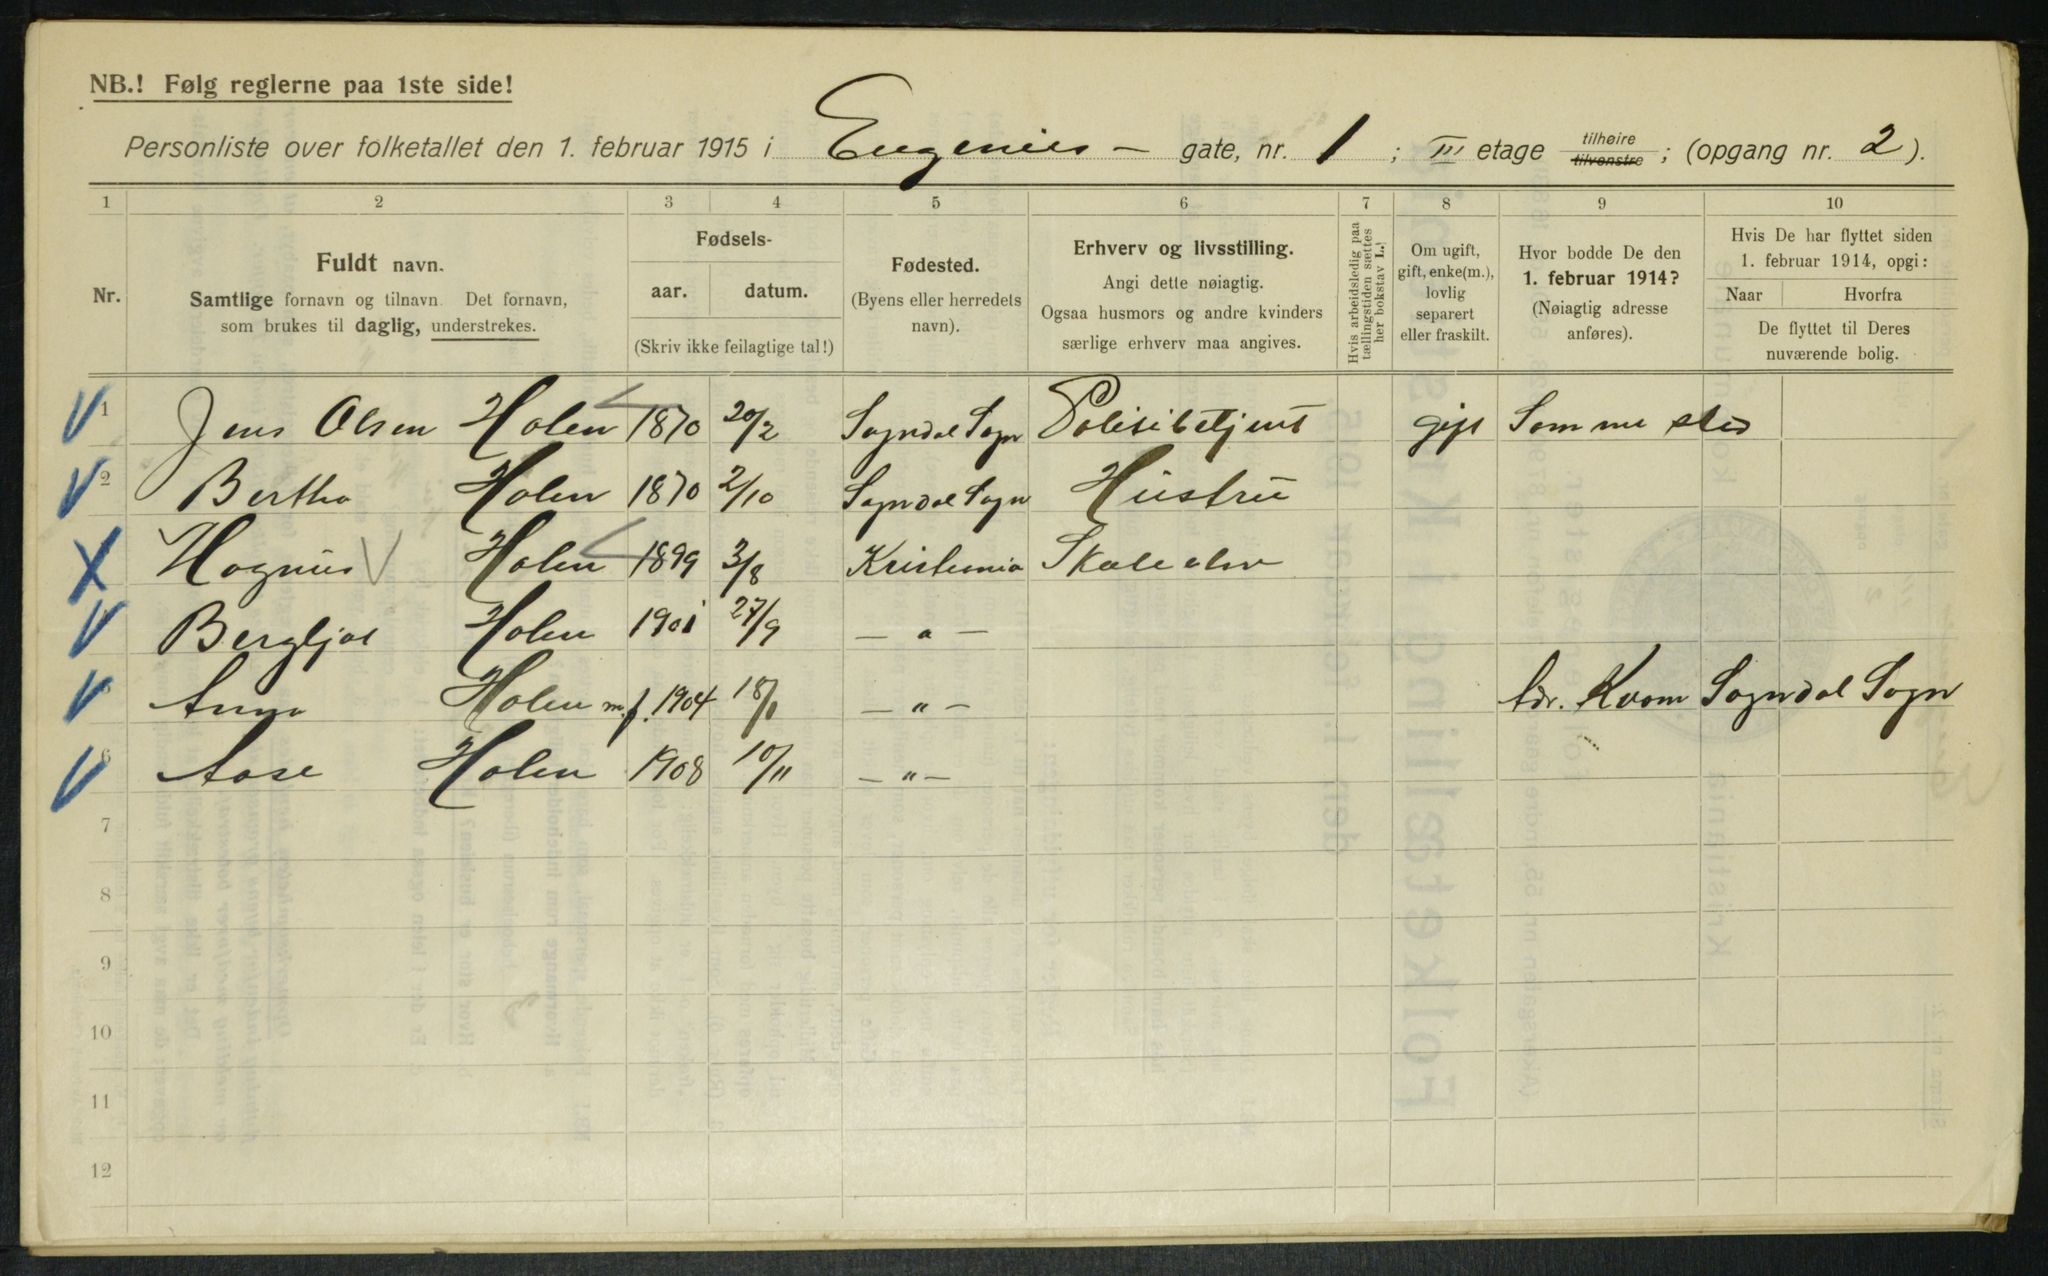 NB.! Følg reglerne paa 1ste side!
Personliste over folketallet den 1. februar 1915 i Eugenies – gate, nr. 1 ; III etage tilhøire tilvenstre ; (opgang nr. 2 ).
1 2 3 4 5 6 7 8 9 10
Nr.
Fuldt navn.
Samtlige fornavn og tilnavn. Det fornavn,
som brukes til daglig, understrekes.
Fødsels-
aar. datum.
(Skriv ikke feilagtige tal!)
Fødested.
(Byens eller herredets
navn).
Erhverv og livsstilling.
Angi dette nøiagtig.
Ogsaa husmors og andre kvinders
særlige erhverv maa angives.
Hvis arbeidsledig paa
tællingstiden sættes
her bokstav L.
Om ugift,
gift, enke(m.),
lovlig
separert
eller fraskilt.
Hvor bodde De den
1. februar 1914?
(Nøiagtig adresse
anføres).
Hvis De har flyttet siden
1. februar 1914, opgi:
Naar Hvorfra
De flyttet til Deres
nuværende bolig.
1 Jens Olsen Holen 1870 20/2 Sogndal Sogn Polisibetjent gift Samme sted
2 Bertha Holen 1870 2/10 Sogndal Sogn Hustru
Magnus Holen 1899 3/8 Kristiania Skoleelev
Bergljot Holen 1901 27/9 — " —
Anna Holen m.f. 1904 18/1 — " — Adr. Kvam Sogndal Sogn
6 Aase Holen 1908 10/11 — " —
7
8
9
10
11
12